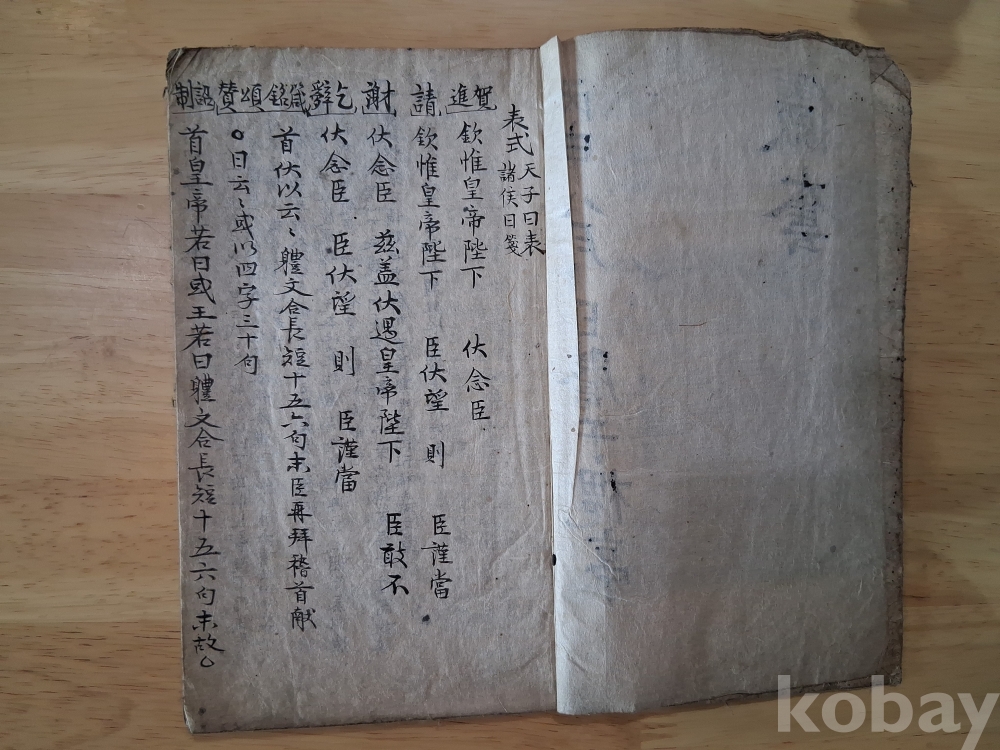 表式 天子曰表
諸侯曰箋
賀進 欽惟皇帝陛下 伏念臣
請 欽惟皇帝陛下 臣伏望 則 臣謹當
謝 伏念臣 茲盖伏遇皇帝陛下 臣敢不
乞辭 伏念臣 臣伏望 則 臣謹當
箴銘 首伏以云〻體文合長短十五六句末臣再拜稽首献
頌贊 曰云〻或以四字三十句
詔制 首皇帝若曰或王若曰體文合長短十五六句末故
kobay